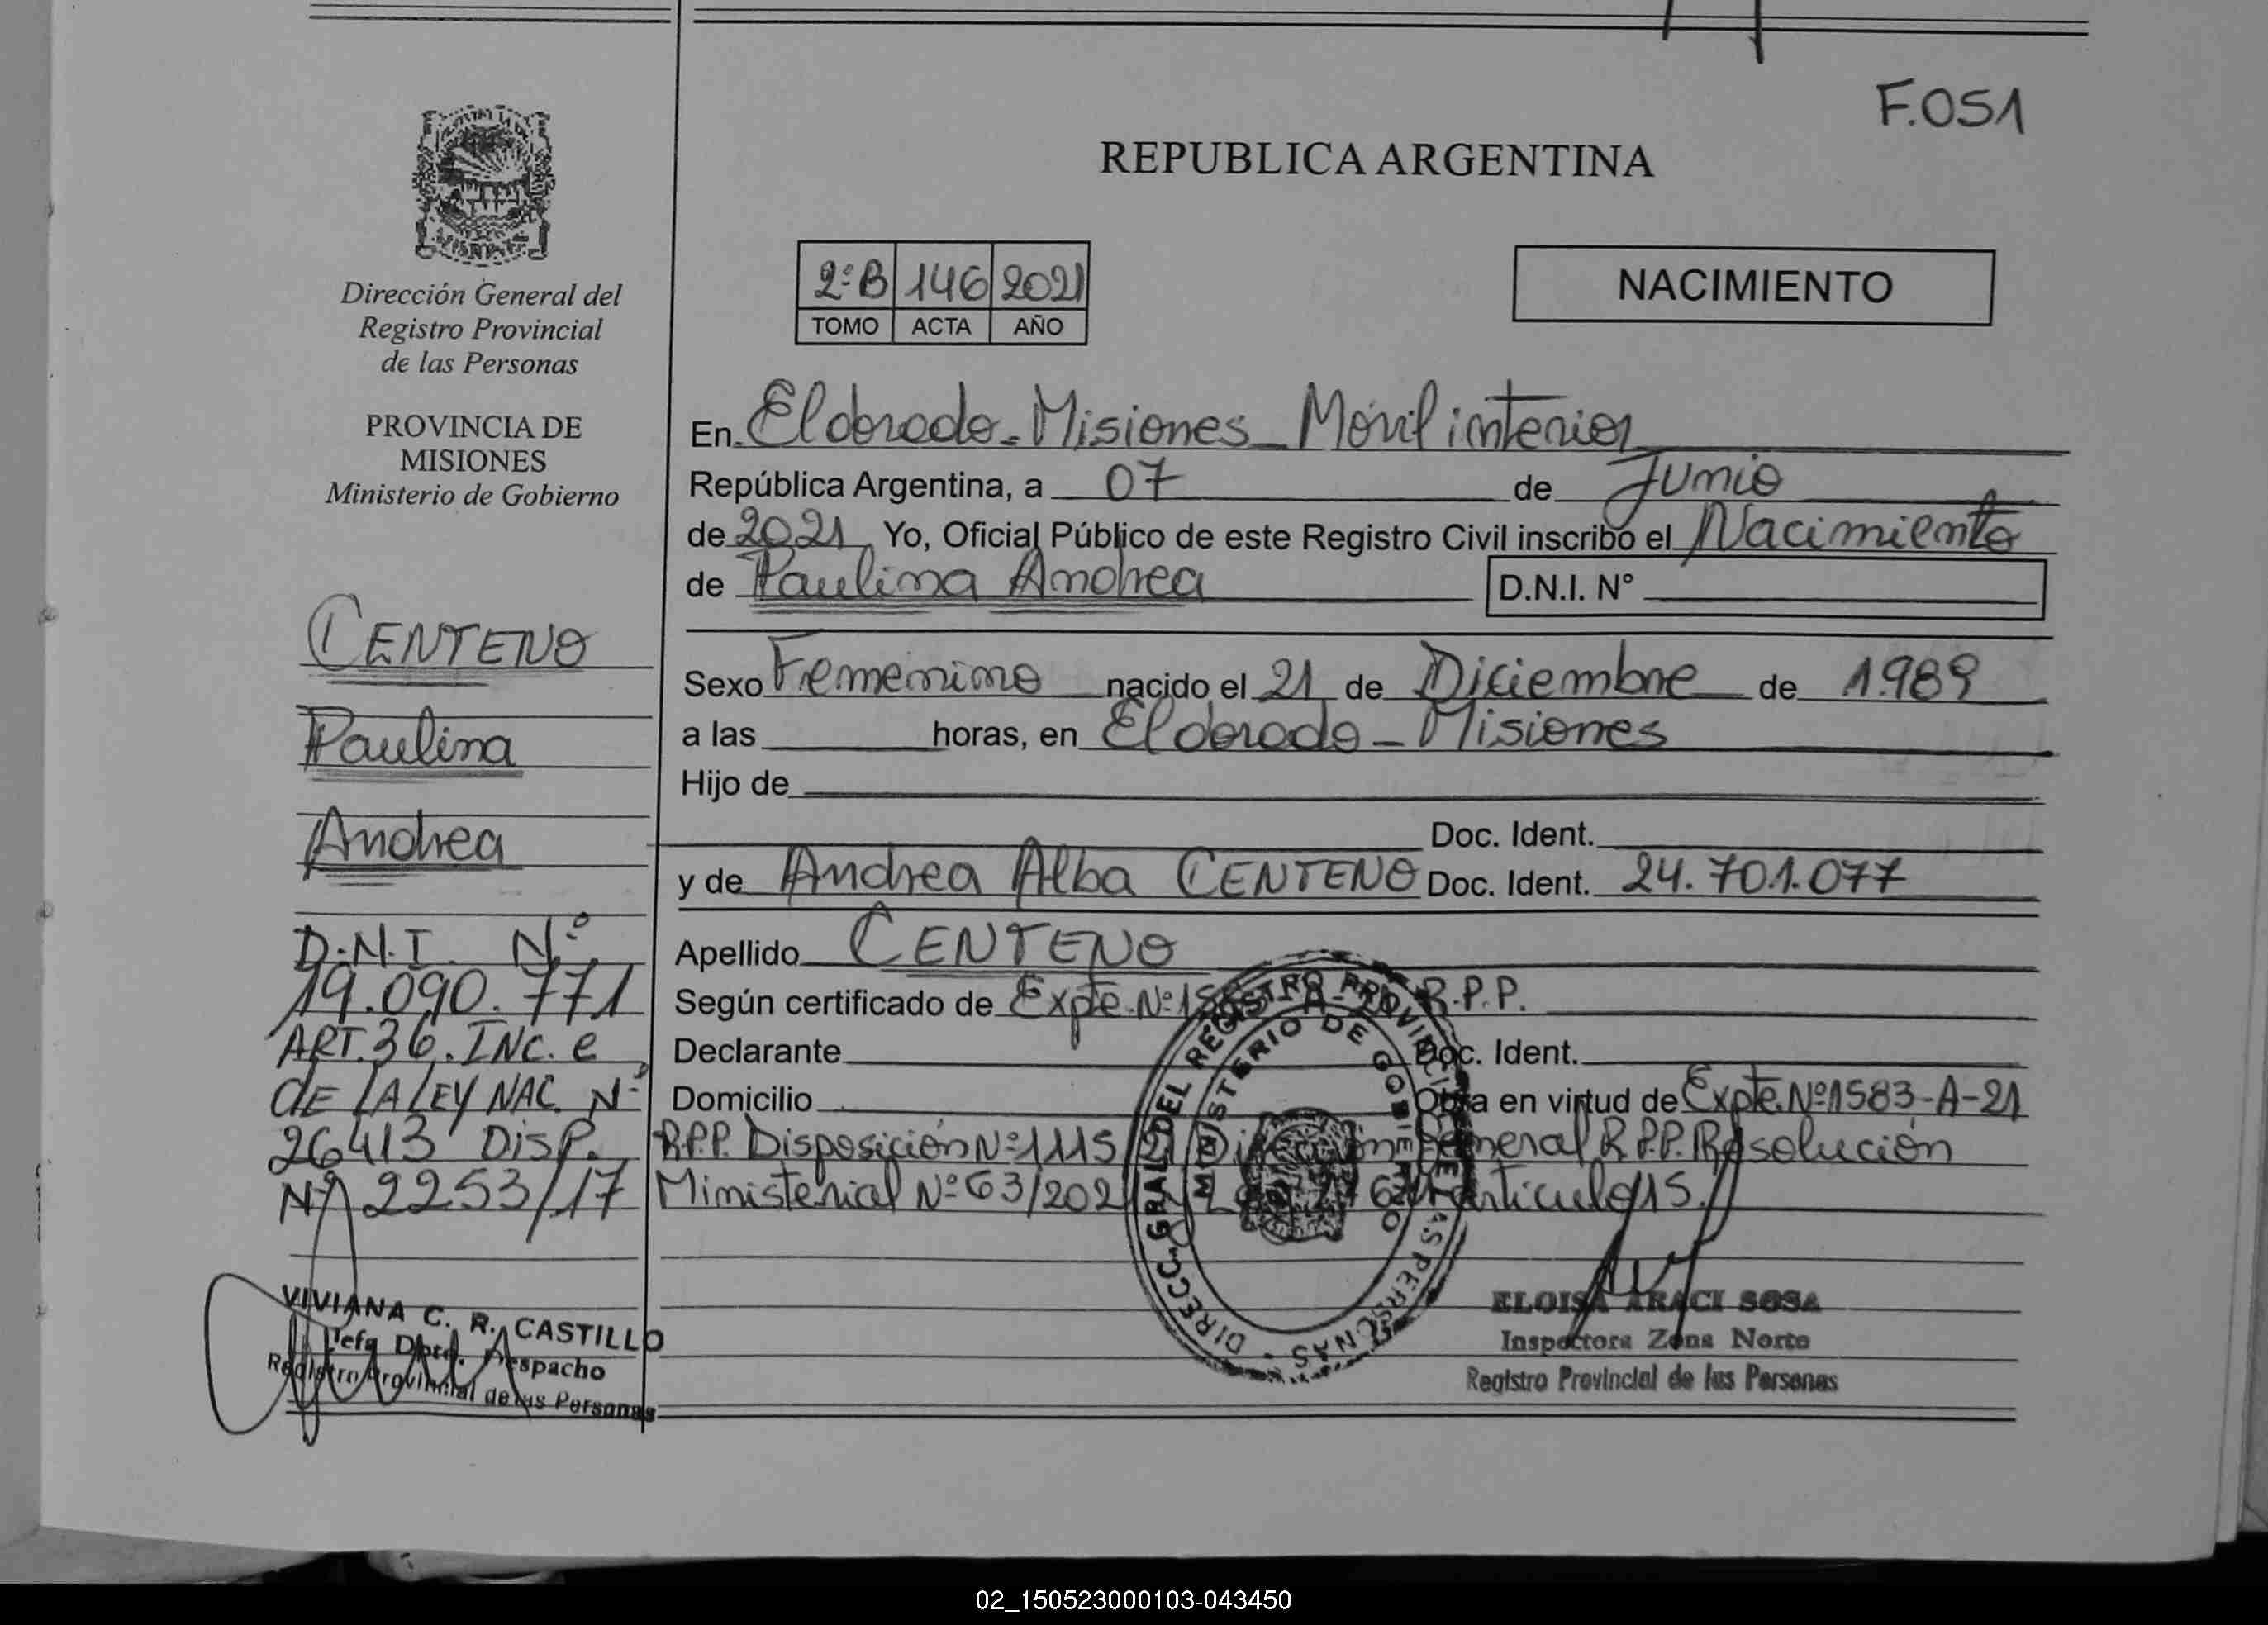 F.051
REPUBLICA ARGENTINA
2º B 146 2021
TOMO ACTA AÑO
NACIMIENTO
Dirección General del
Registro Provincial
de las Personas
PROVINCIA DE
MISIONES
Ministerio de Gobierno
CENTENO
Paulina
Andrea
D.N.I. Nº
19.090.771
ART.36.INC.e
de LA LEY NAC. Nº
26413 DISP.
Nº 2253/17
VIVIANA C. R. CASTILLO
Jefa Dpto. Despacho
Registro Provincial de las Personas
En Eldorado - Misiones - Móvil interior
República Argentina, a 07 de Junio
de 2021 Yo, Oficial Público de este Registro Civil inscribo el Nacimiento
de Paulina Andrea D.N.I. N°
Sexo Femenino nacido el 21 de Diciembre de 1.989
a las horas, en Eldorado - Misiones
Hijo de
Doc. Ident.
y de Andrea Alba CENTENO Doc. Ident. 24.701.077
Apellido CENTENO
Según certificado de Expte. Nº R.P.P.
Declarante Doc. Ident.
Domicilio Obra en virtud de Expte Nº 1583-A-21
R.P.P. Disposición Nº 1115 21 Dirección General R.P.P. Resolución
Ministerial Nº 63/202 Artículo 15.
DIRECC. GRAL. DEL REGISTRO PROVINCIAL DE LAS PERSONAS
MINISTERIO DE GOBIERNO
ELOISA ARACI SOSA
Inspectora Zona Norte
Registro Provincial de las Personas
02_150523000103-043450